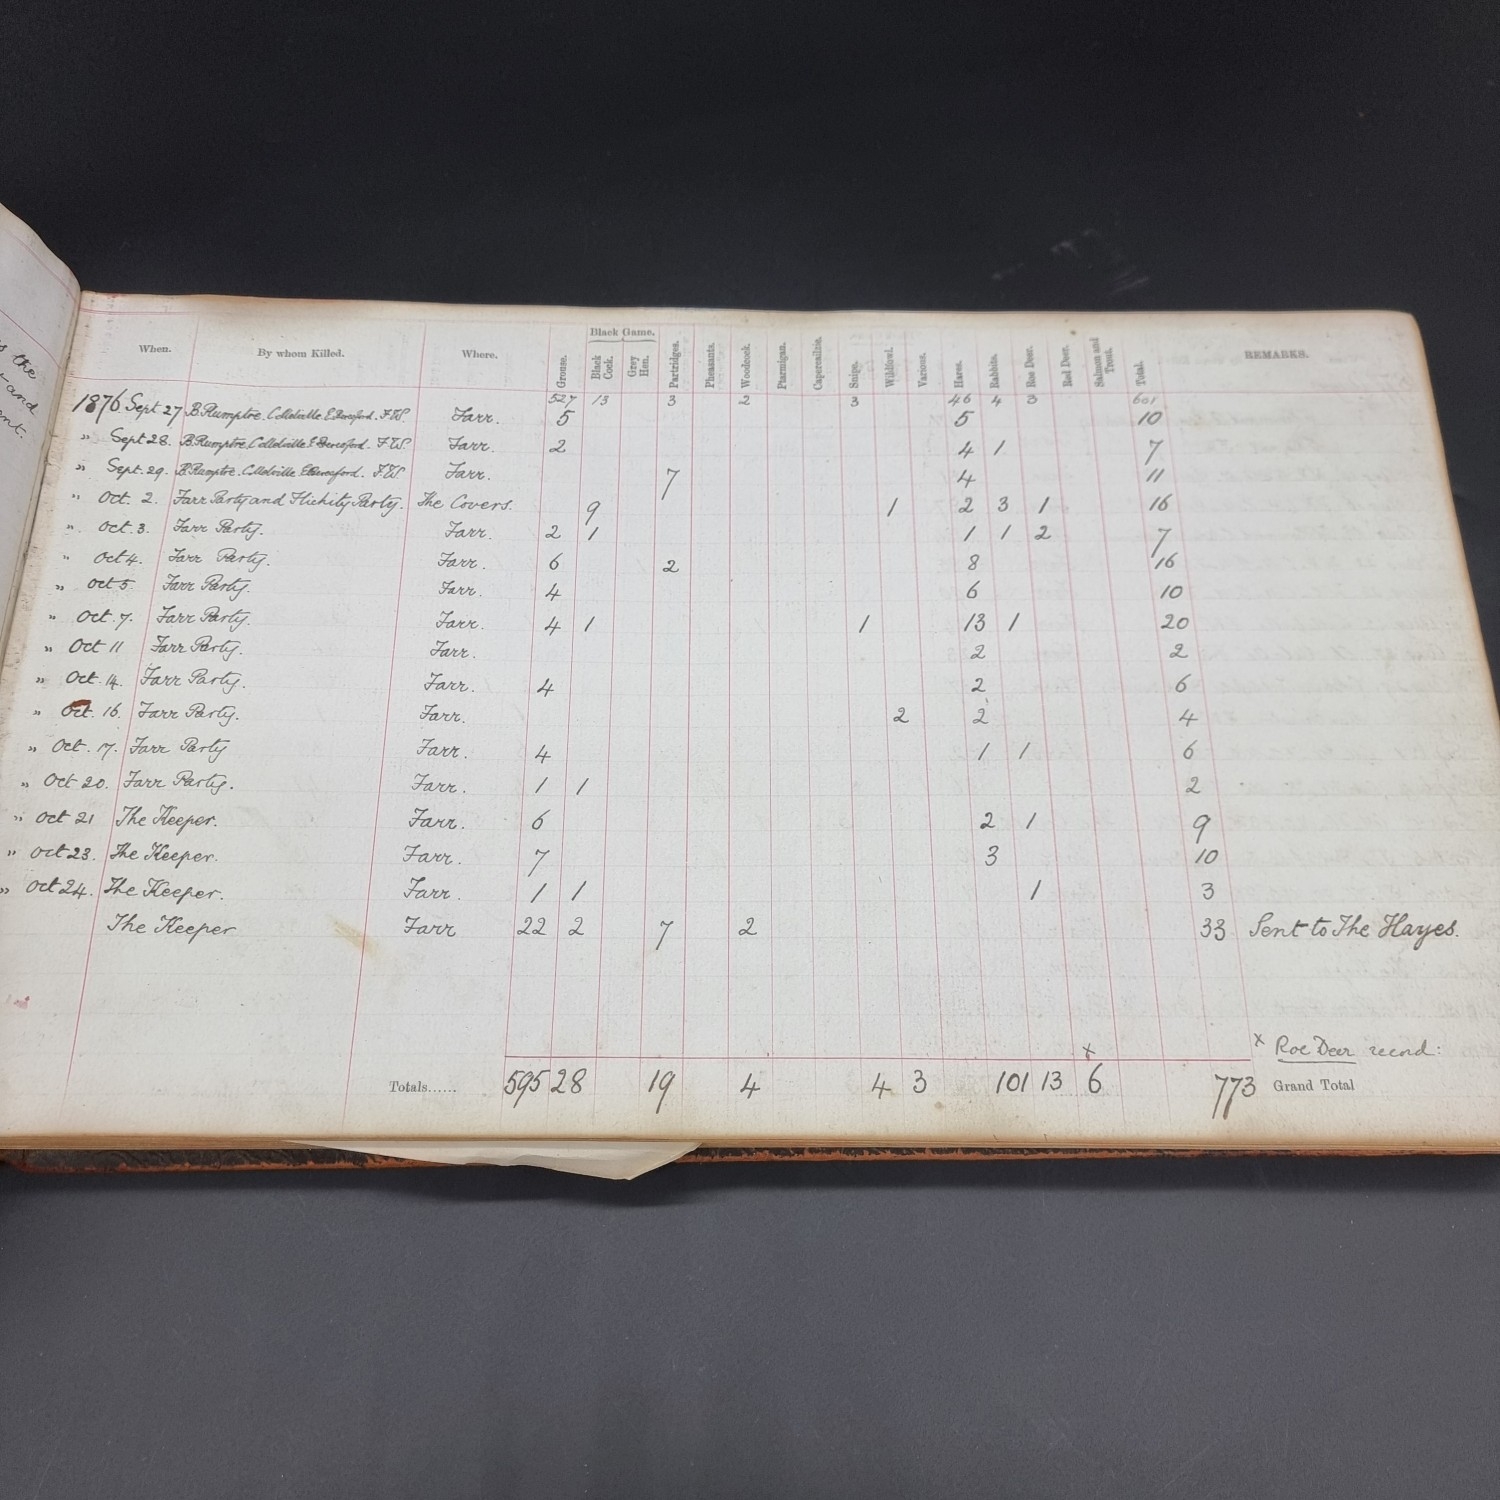 s the
t and
ent.
When. By whom Killed. Where. Grouse. Black Game. Black Cock. Grey Hen. Partridges. Pheasants. Woodcock. Ptarmigan. Capercailzie. Snipe. Wildfowl. Various. Hares. Rabbits. Roe Deer. Red Deer. Salmon and Trout. Total. REMARKS.
527 13 3 2 3 46 4 3 601
1876 Sept 27 B. Rumptre. C. Melville E. Beresford. F.W. Farr. 5 5 10
" Sept 28. B. Rumptre. C. Melville E. Beresford. F.W. Farr. 2 4 1 7
" Sept. 29. B. Rumptre. C. Melville E. Beresford. F.W. Farr. 7 4 11
" Oct. 2. Farr Party and Flichity Party. The Covers. 9 1 2 3 1 16
" Oct. 3. Farr Party. Farr. 2 1 1 1 2 7
" Oct 4. Farr Party. Farr. 6 2 8 16
" Oct 5. Farr Party. Farr. 4 6 10
" Oct. 7. Farr Party. Farr. 4 1 1 13 1 20
" Oct 11 Farr Party. Farr. 2 2
" Oct. 14. Farr Party. Farr. 4 2 6
" Oct. 16. Farr Party. Farr. 2 2 4
" Oct. 17. Farr Party Farr. 4 1 1 6
" Oct 20. Farr Party. Farr. 1 1 2
" Oct 21 The Keeper. Farr. 6 2 1 9
" Oct 23. The Keeper. Farr. 7 3 10
" Oct 24. The Keeper. Farr. 1 1 1 3
The Keeper Farr 22 2 7 2 33 Sent to The Hayes.
x x Roe Deer record:
Totals...... 595 28 19 4 4 3 101 13 6 773 Grand Total